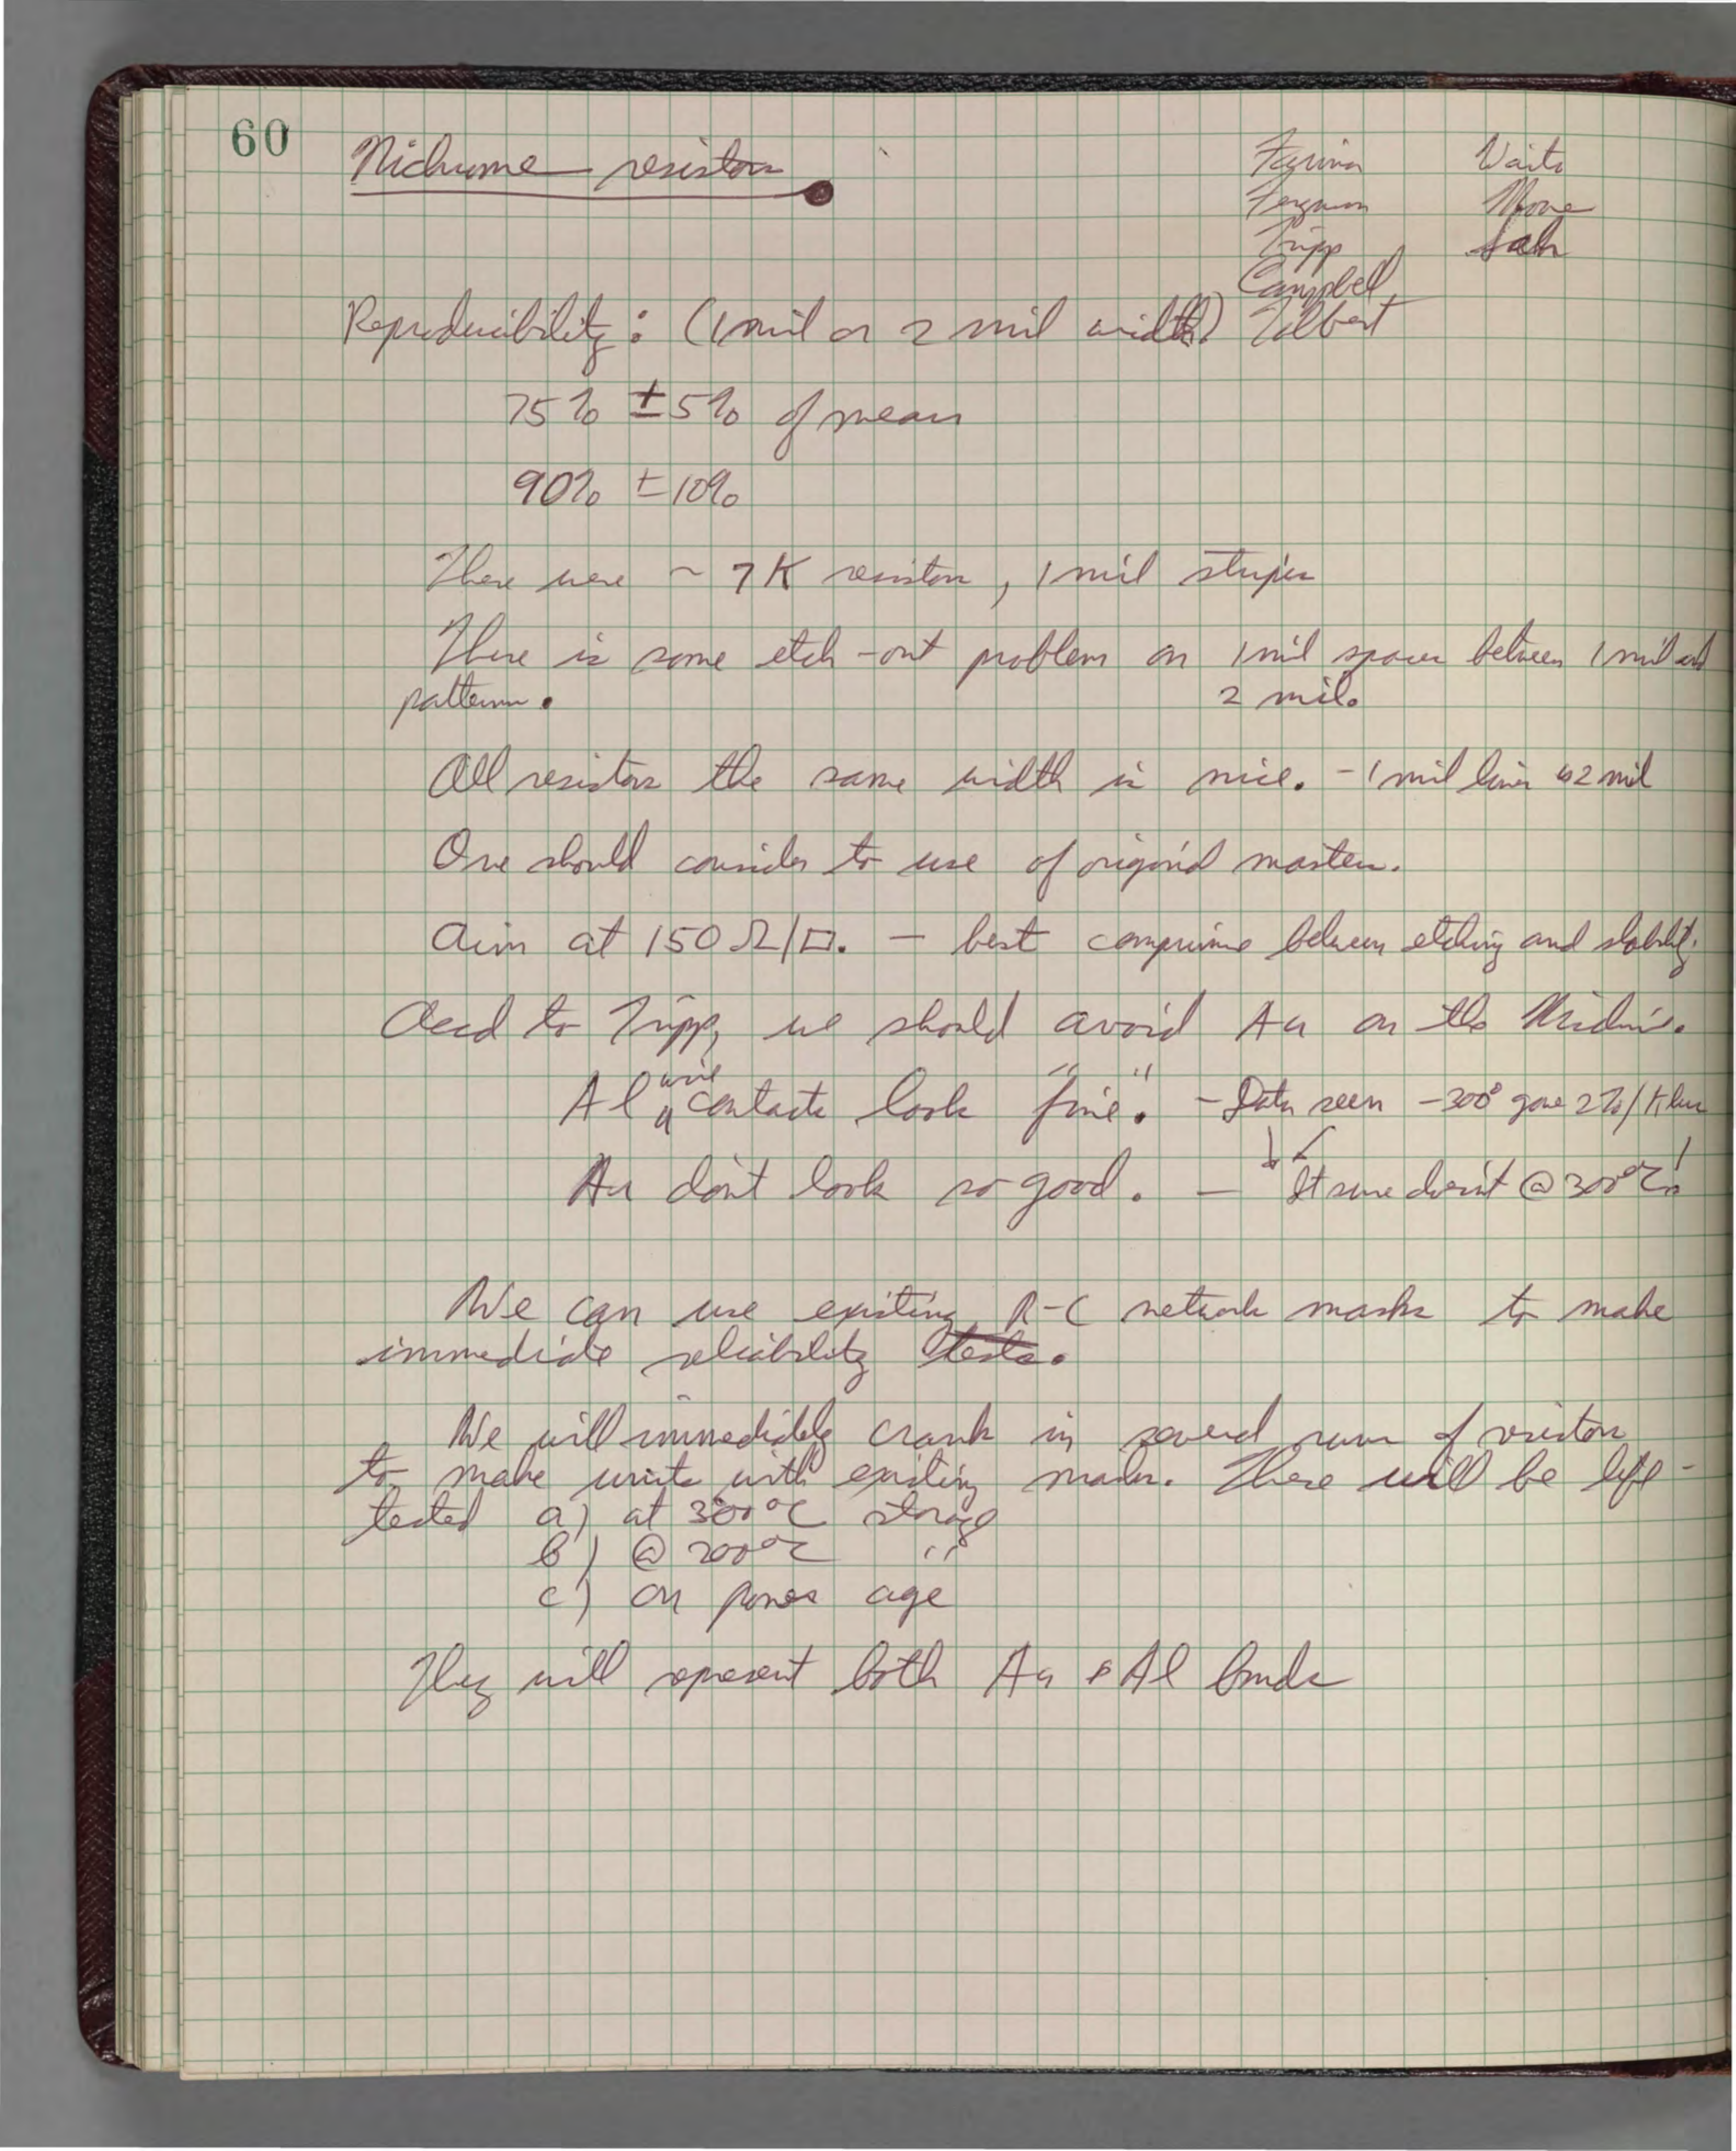 60
Nichrome resistors
Farina Waits
Ferguson Moore
Tripp Sah
Campbell
Reproducibility: (1 mil or 2 mil width) Talbert
75% ±5% of mean
90% ±10%
These were ~ 7K resistors, 1 mil stripes
There is some etch-out problem on 1 mil spaces between 1 mil and
patterns. 2 mil.
All resistors the same width is nice. - 1 mil lines 2 mil
One should consider to use of original masters.
Aim at 150 Ω/□. — best compromise between etching and stability.
Accd to Tripp, we should avoid Au on the Nichrome.
Al wire contacts look "fine". - Data seen - 300° gave 2%/K hrs
Au don't look so good. — It sure doesn't @ 300°C!
We can use existing R-C network masks to make
immediate reliability tests.
We will immediately crank in several runs of resistors
to make units with existing masks. These will be life-
tested a) at 300°C storage
b) @ 200°C "
c) on power age
They will represent both Au & Al bonds